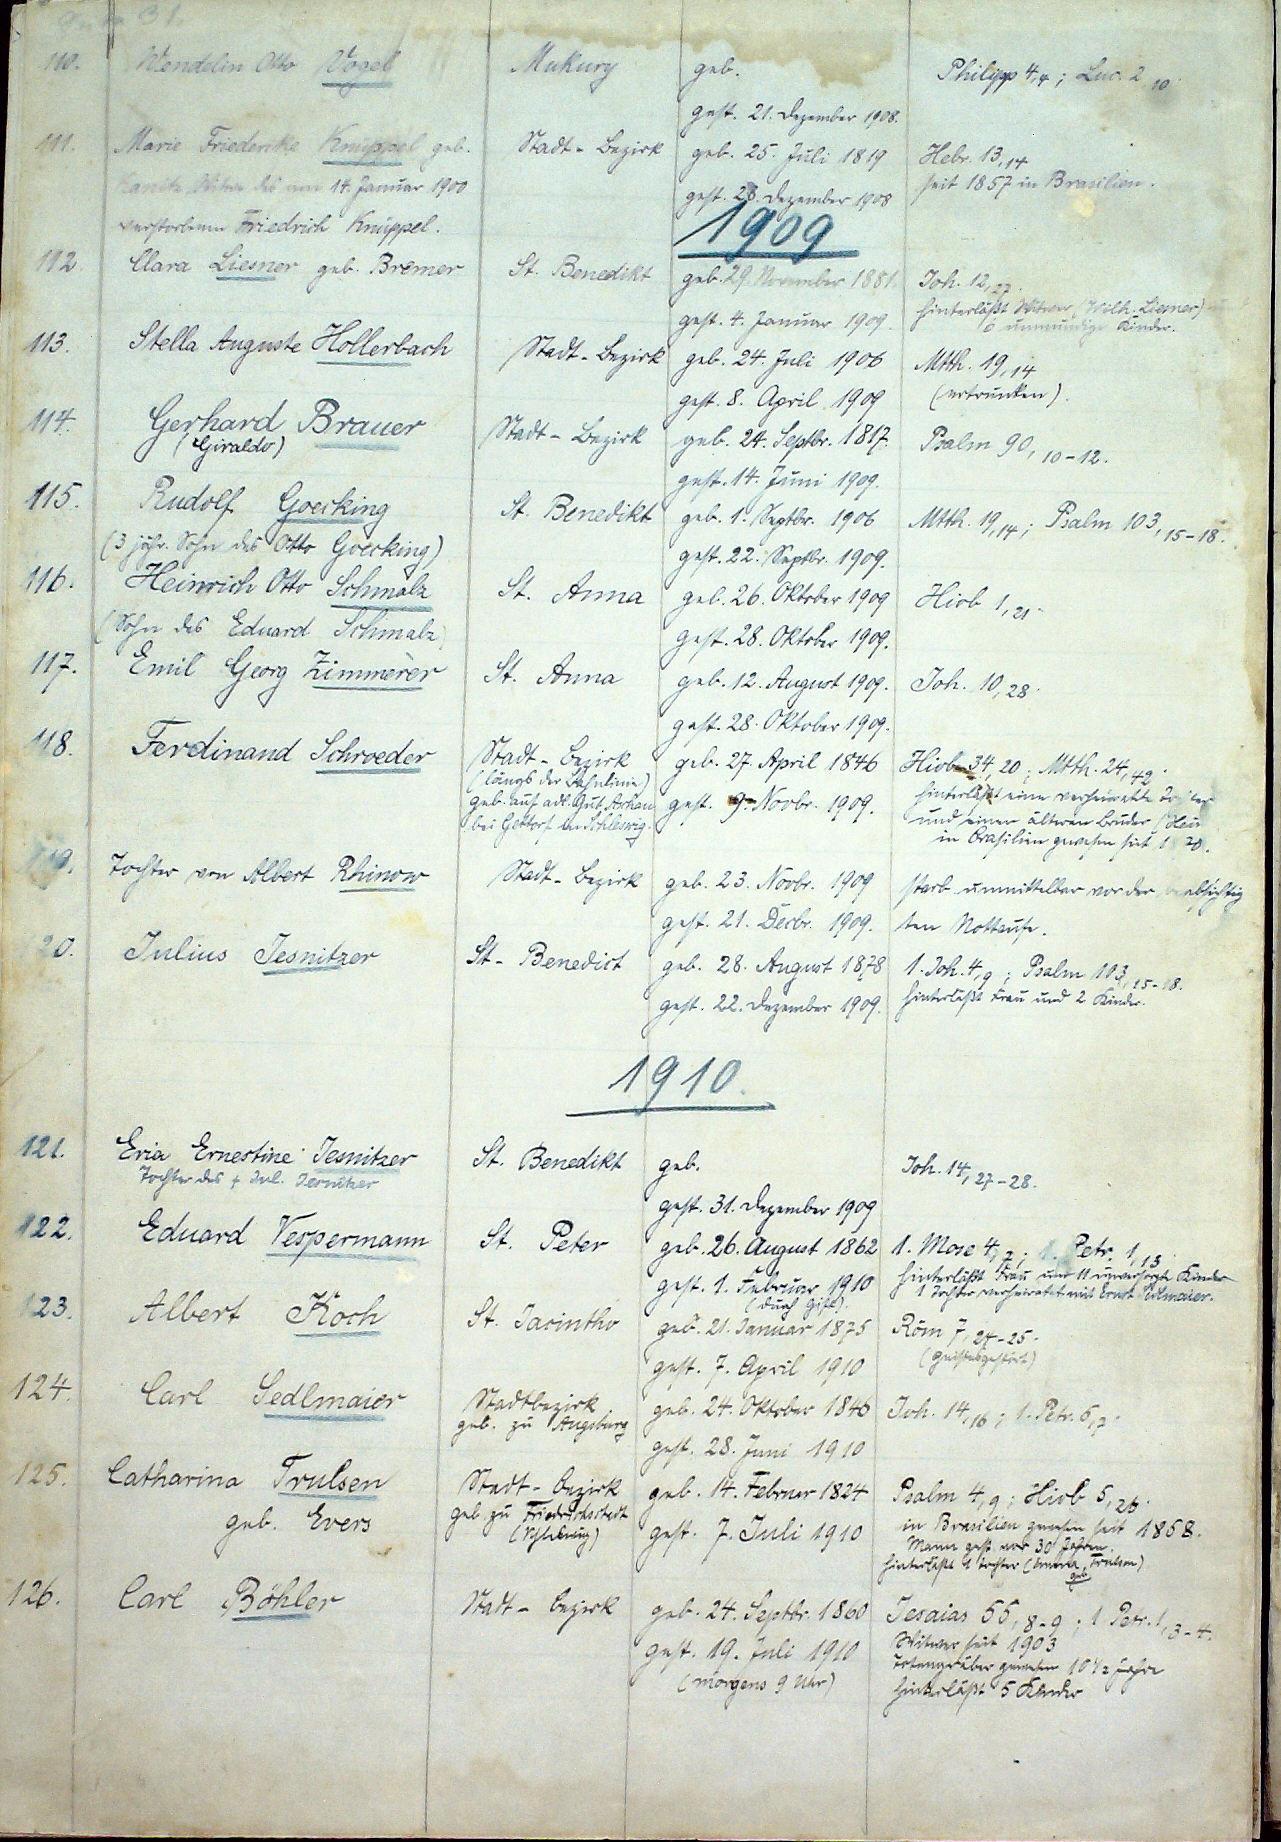 110. Wendelin Otto Vogel Mukury geb. Philipp 4,4; Luc. 2 10.
gest. 21. Dezember 1908.
111. Marie Friederike Knüppel geb. Stadt-Bezirk geb. 25. Juli 1819 Hebr. 13,14
Witwe des am 14. Januar 1900 gest. 28. Dezember 1908 seit 1857 in Brasilien.
verstorbenen Friedrich Knüppel.
1909
112. Clara Liesner geb. Bremer St. Benedikt geb. 29. November 1881. Joh. 12,27.
gest. 4. Januar 1909. hinterläßt Witwer (Wilh. Liesner)
6 unmündige Kinder.
113. Stella Auguste Hollerbach Stadt-Bezirk geb. 24. Juli 1906 Mtth. 19,14
gest. 8. April 1909 (ertrunken).
114. Gerhard Brauer Stadt-Bezirk geb. 24. Septbr. 1817. Psalm 90, 10-12.
(Giraldo) gest. 14. Juni 1909.
115. Rudolf Goecking St. Benedikt geb. 1. Septbr. 1906 Mtth. 19,14; Psalm 103, 15-18.
(3 jähr. Sohn des Otto Goecking) gest. 22. Septbr. 1909.
116. Heinrich Otto Schmalz St. Anna geb. 26. Oktober 1909 Hiob 1,21.
(Sohn des Eduard Schmalz) gest. 28. Oktober 1909.
117. Emil Georg Zimmerer St. Anna geb. 12. August 1909. Joh. 10,28.
gest. 28. Oktober 1909.
118. Ferdinand Schroeder Stadt-Bezirk geb. 27. April 1846 Hiob 34,20; Mtth. 24,42.
(längs der Bahnlinie) hinterläßt eine verheiratete Tochter
geb. auf adl. Gut gest. 9. Novbr. 1909. und einen älteren Bruder
bei Gettorf in Schleswig. in Brasilien gewesen seit
119. Tochter von Albert Rhinow Stadt-Bezirk geb. 23. Novbr. 1909 starb unmittelbar vor der beabsichtig
gest. 21. Decbr. 1909. ten Nottaufe.
20. Julius Jesnitzer St-Benedict geb. 28. August 1878 1. Joh. 4,9; Psalm 103, 15-18.
gest. 22. Dezember 1909. hinterläßt Frau und 2 Kinder.
1910.
121. Eria Ernestine Jesnitzer St. Benedikt geb. Joh. 14, 27-28.
Tochter des † Jul. Jesnitzer
gest. 31. Dezember 1909
122. Eduard Vespermann St. Peter geb. 26. August 1862 1. Mose 4,7; 1. Petr. 1,13.
gest. 1. Februar 1910 hinterläßt Frau und 11 unversorgte Kinder
(durch Gift). 1 Tochter verheiratet mit Ernst Sedlmaier.
123. Albert Koch St. Jacintho geb. 21. Januar 1875 Röm 7, 24-25.
gest. 7. April 1910 (geistesgestört)
124. Carl Sedlmaier Stadtbezirk geb. 24. Oktober 1846 Joh. 14,16; 1. Petr. 5,7.
geb. zu Augsburg gest. 28. Juni 1910
125. Catharina Trulsen Stadt-Bezirk geb. 14. Februar 1824 Psalm 4,9; Hiob 5,26.
geb. Evers geb. zu Friedrichstadt gest. 7. Juli 1910 in Brasilien gewesen seit 1868.
(Schleswig) Mann gest. vor 30 Jahren.
hinterläßt 1 Tochter geb. Trulsen)
126. Carl Böhler Stadt-Bezirk geb. 24. Septbr. 1860 Jesaias 55, 8-9; 1 Petr. 1, 3-4.
gest. 19. Juli 1910 Witwer seit 1903
(morgens 9 Uhr) Totengräber gewesen 10½ Jahre
hinterläßt 5 Kinder